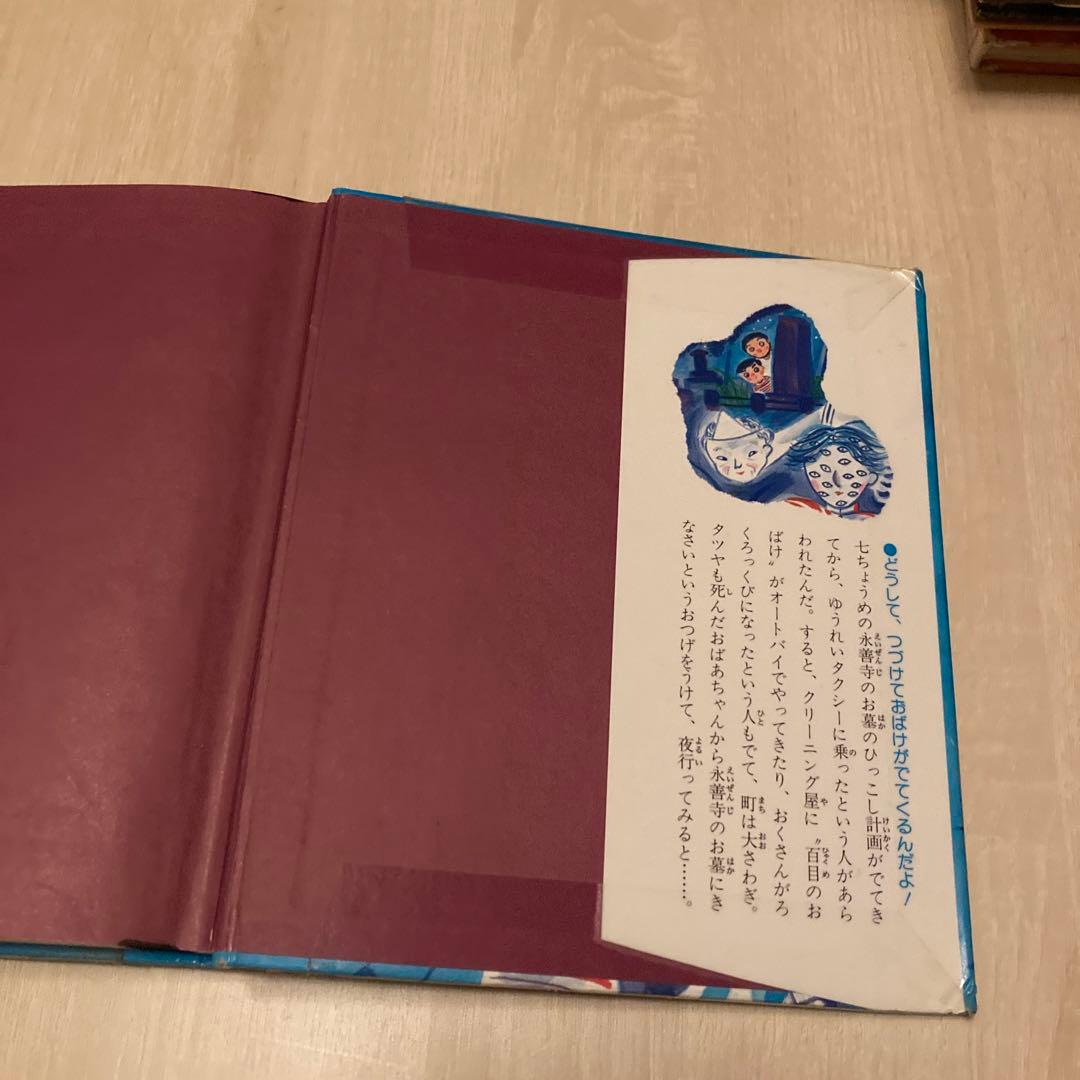 ●どうして、つづけておばけがでてくるんだよ！
七ちょうめの永善寺のお墓のひっこし計画がでてき
てから、ゆうれいタクシーに乗ったという人があら
われたんだ。すると、クリーニング屋に〝百目のお
ばけ〟がオートバイでやってきたり、おくさんがろ
くろっくびになったという人もでて、町は大さわぎ。
タツヤも死んだおばあちゃんから永善寺のお墓にき
なさいというおつげをうけて、夜行ってみると……。